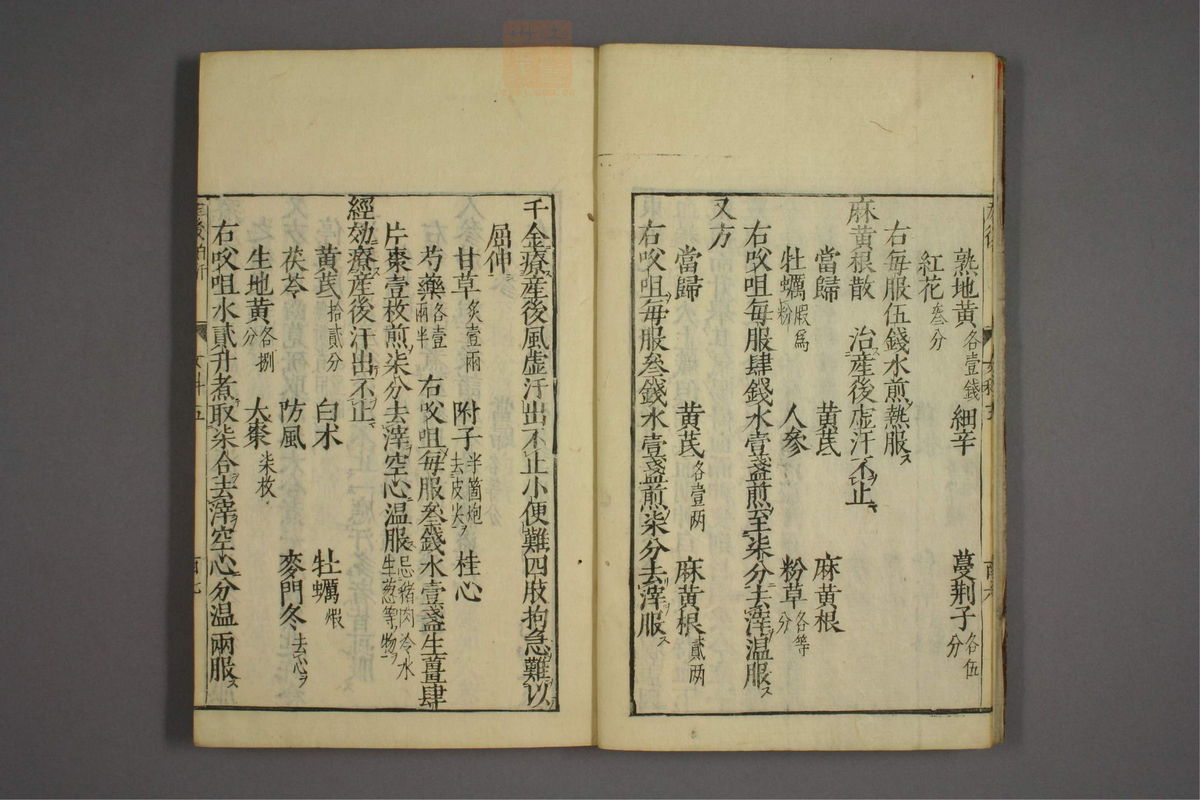 熟地黄各壹錢 細辛 蔓荆子各伍分
紅花叁分
右每服伍錢水煎熱服ス
麻黄根散 治産後虚汗不止
當歸 黄芪 麻黄根
牡蠣煆爲粉 人參 粉草各等分
右㕮咀每服肆錢水壹盞煎至柒分去滓温服ス
又方
當歸 黄芪各壹两 麻黄根貳两
右㕮咀每服叁錢水壹盞煎柒分去滓服ス
千金療産後風虚汗出不止小便難四肢拘急難以
屈伸
甘草炙壹兩 附子半箇炮去皮尖ヲ 桂心
芍藥各壹兩半 右㕮咀每服叁錢水壹盞生薑肆
片棗壹枚煎柒分去滓空心温服忌猪肉冷水生葱等物ヲ
經効療産後汗出不止
黄芪拾貳分 白术 牡蠣煆
茯苓 防風 麥門冬去心ヲ
生地黄各捌分 大棗柒枚
右㕮咀水貳升煮取柒合去滓空心分温兩服ス
女科五